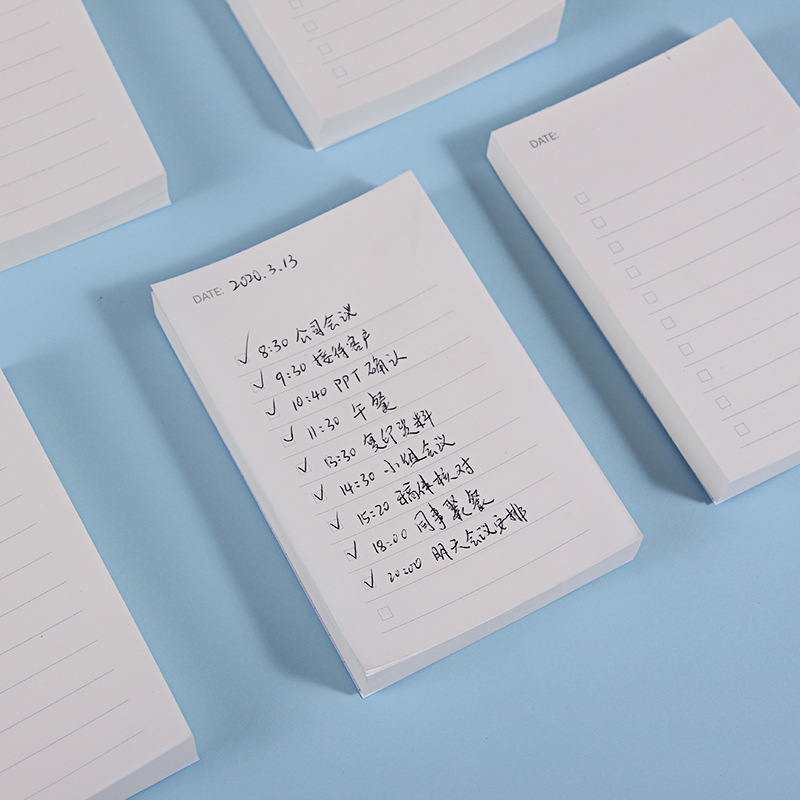 DATE: 2020.3.13
✓ 8:30 公司会议
✓ 9:30 接待客户
✓ 10:40 PPT 确认
✓ 11:30 午餐
✓ 13:30 复印资料
✓ 14:30 小组会议
✓ 15:20 稿件核对
✓ 18:00 同事聚餐
✓ 20:00 明天会议安排
DATE: